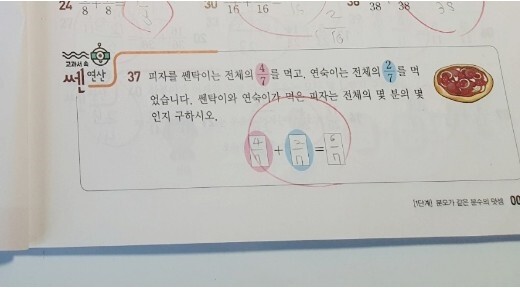 24 8 + 8 = 30 16 + 16 38 38
교과서 속
쎈연산
37 피자를 쎈탁이는 전체의 4/7를 먹고, 연숙이는 전체의 2/7를 먹
었습니다. 쎈탁이와 연숙이가 먹은 피자는 전체의 몇 분의 몇
인지 구하시오.
4/7 + 2/7 = 6/7
[1단계] 분모가 같은 분수의 덧셈